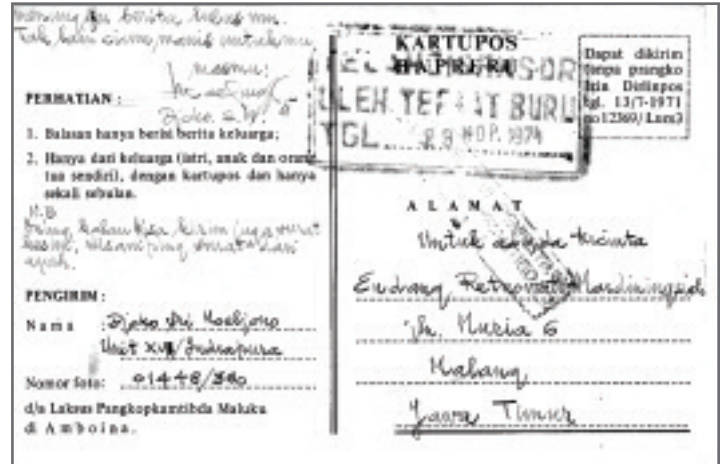 menunggu berita balas mu.
Tak lain cium manis untukmu,
masmu:
PERHATIAN :
1. Balasan hanya berisi berita keluarga;
2. Hanya dari keluarga (istri, anak dan orang
tua sendiri), dengan kartupos dan hanya
sekali sebulan.
N.B
ayah.
PENGIRIM :
Nama : Djoko Sri Moeljono
Unit XVI/Indrapura
Nomor foto: 01448/
d/a Laksus Pangkopkamtibda Maluku
di Amboina.
KARTUPOS
BAPRERU
OLEH TEFAAT BURU
TGL. 29 NOP. 1974
Dapat dikirim
tanpa prangko
Izin Dirlitpos
tgl. 13/7-1971
no 12369/Lum3
ALAMAT
Untuk adinda tercinta
Endang Retnowati Mardiningsih
Jln. Muria 6
Malang
Jawa Timur